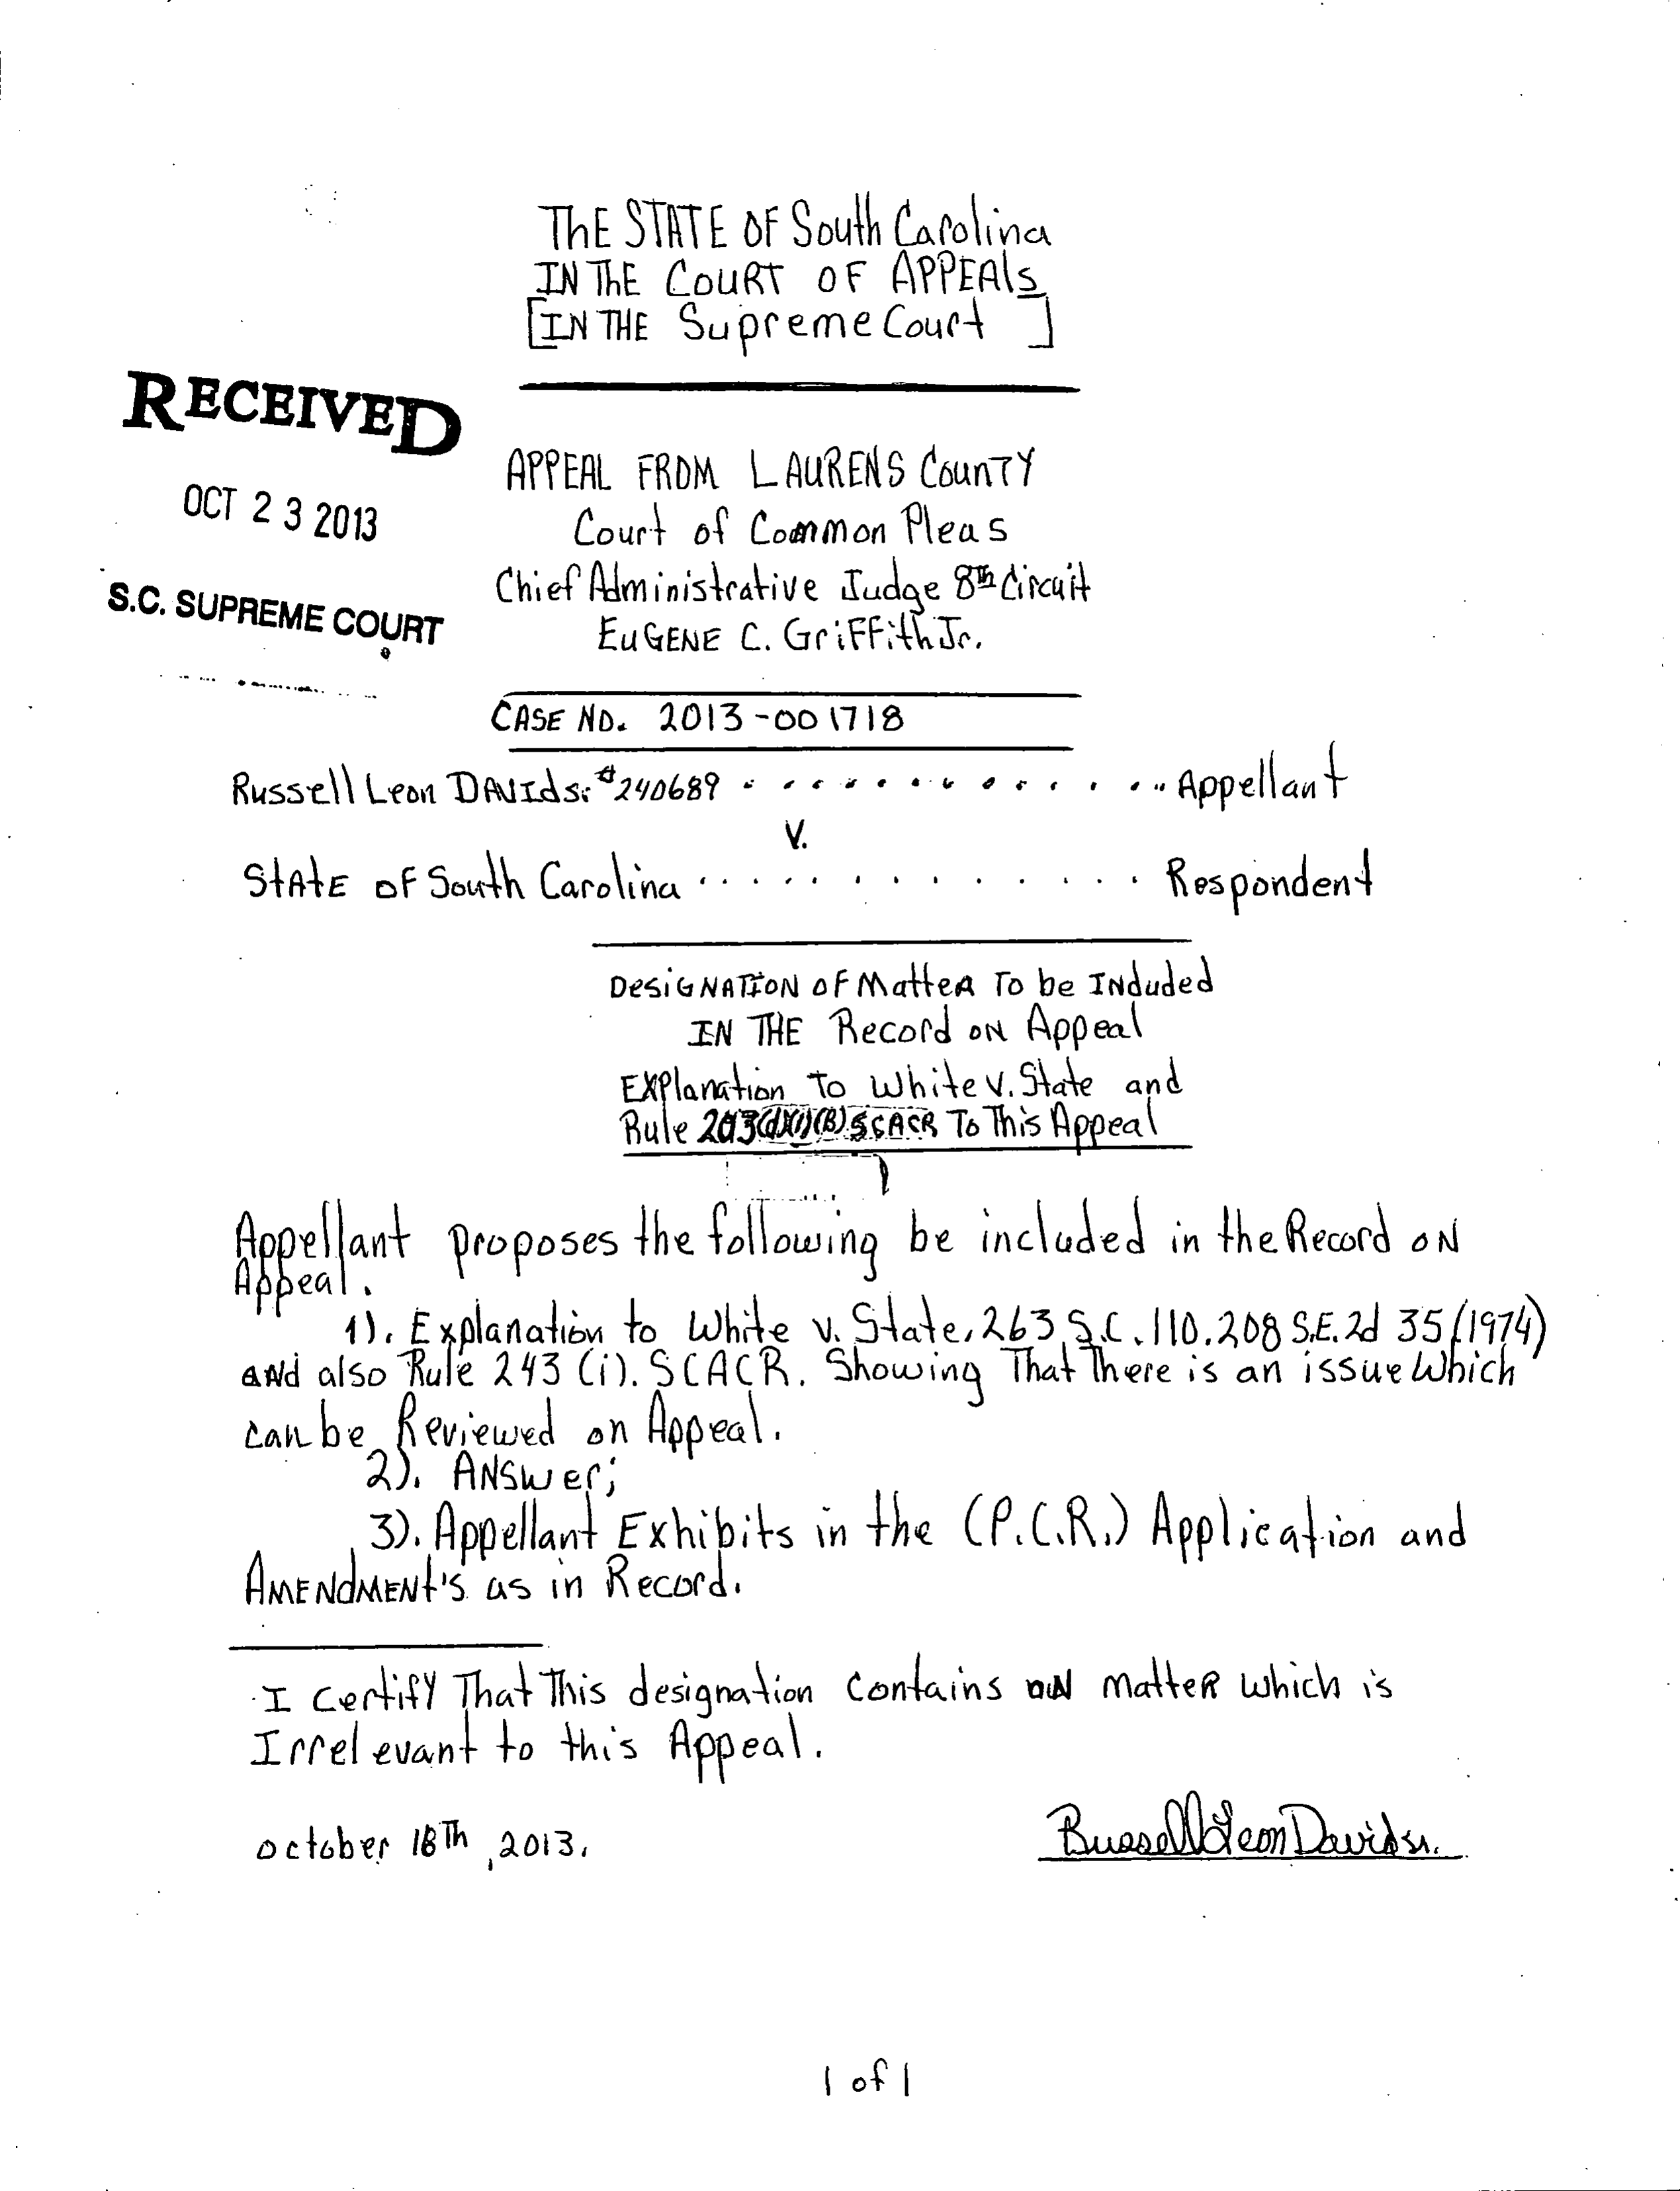 ThE STATE OF South Carolina
IN ThE COURT OF APPEAls
[IN THE Supreme Court ]
RECEIVED
OCT 23 2013
S.C. SUPREME COURT
APPEAL FROM LAURENS CounTY
Court of Common Pleas
Chief Administrative Judge 8th Circuit
EuGENE C. GriFFith Jr.
CASE NO. 2013-001718
Russell Leon DAVIds: #240689 . . . . . . . . . . . . . . Appellant
V.
StAtE OF South Carolina . . . . . . . . . . . . . Respondent
DesiGNATION OF MatteR To be INcluded
IN THE Record ON Appeal
EXPlanation To White v. State and
Rule 203(d)(1)(B) SCACR To This Appeal
Appellant proposes the following be included in the Record ON
Appeal.
1). Explanation to White v. State, 263 S.C. 110. 208 S.E. 2d 35 (1974)
aNd also Rule 243 (i). SCACR. Showing That There is an issue Which
can be Reviewed on Appeal.
2). ANSwer;
3). Appellant Exhibits in the (P.C.R.) Application and
AMENdMENt's as in Record.
I certifY That This designation contains matteR which is
Irrelevant to this Appeal.
october 18Th, 2013.
Russell Leon Davids.
1 of 1